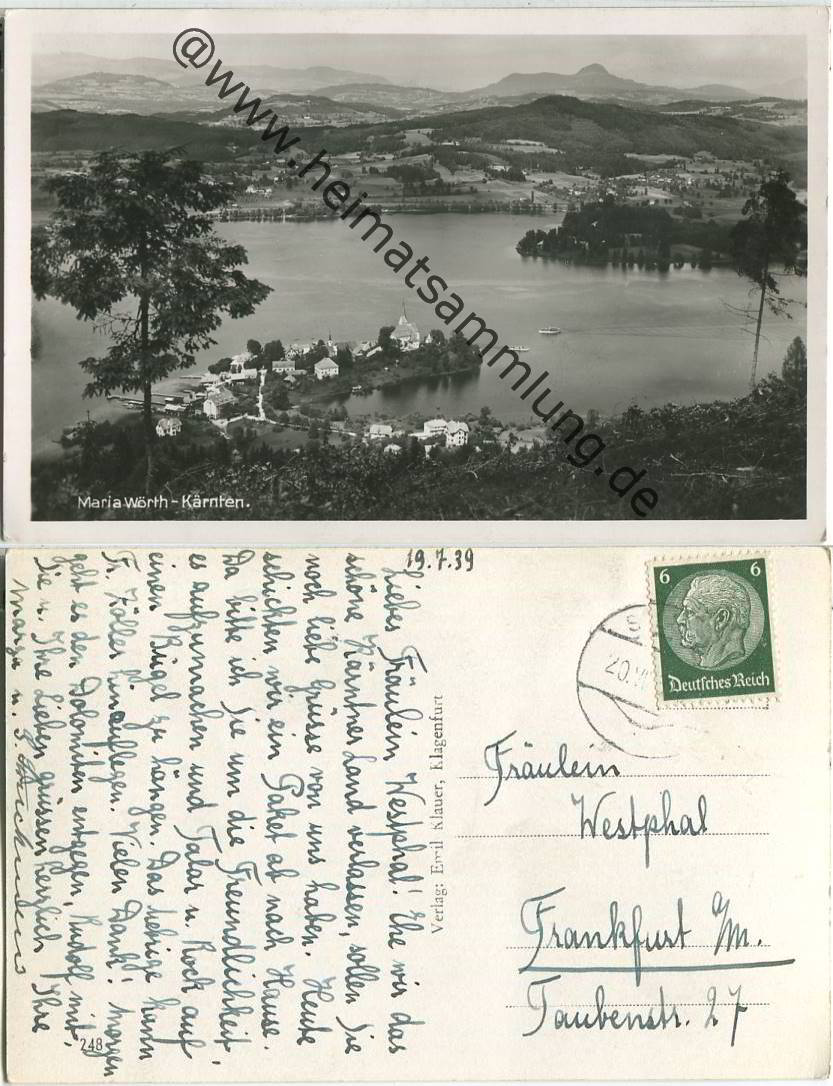 @www.heimatsammlung.de
Maria Wörth - Kärnten.
19.7.39
Liebes Fräulein Westphal! Ehe wir das
schöne Kärntner Land verlassen, sollen Sie
noch liebe Grüsse von uns haben. Heute
schickten wir ein Paket ab nach Hause.
Da bitte ich Sie um die Freundlichkeit,
es aufzumachen und Talar u. Rock auf
einen Bügel zu hängen. Das übrige kann
Fr. Zöller hinauflegen. Vielen Dank! Morgen
geht es den Dolomiten entgegen, Rudolf mit.
Sie u. Ihre Lieben grüssen herzlich Ihre
248
Verlag: Emil Klauer, Klagenfurt
6 6
Deutsches Reich
20.
Fräulein
Westphal
Frankfurt a/M.
Taubenstr. 27